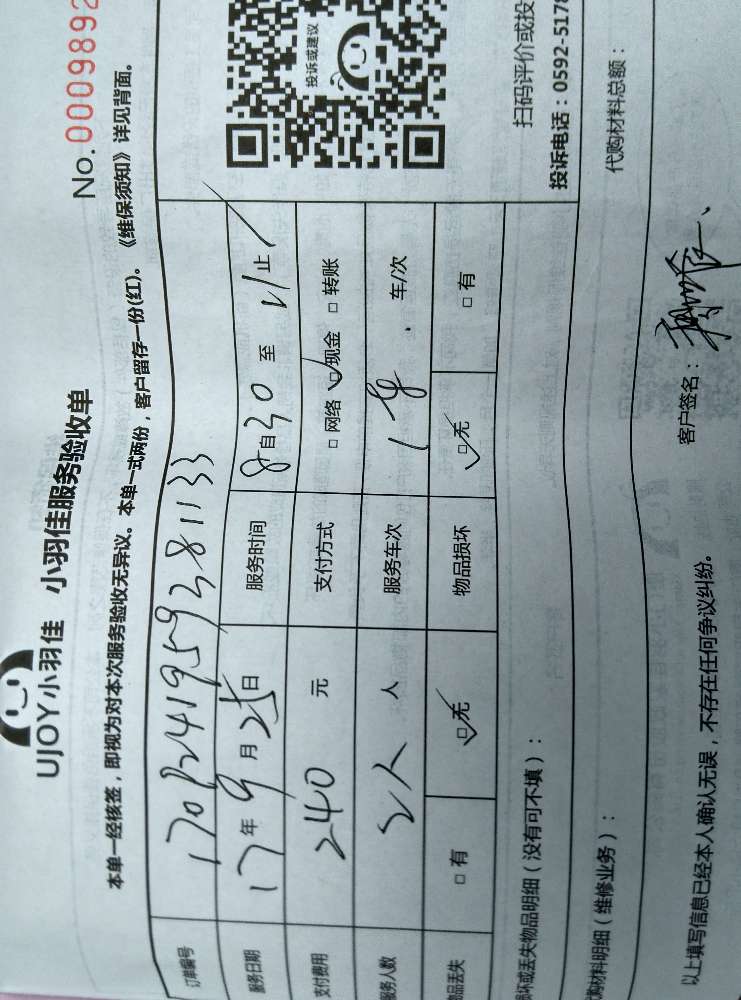 UJOY小羽佳 小羽佳服务验收单
No.0009892
本单一经核签，即视为对本次服务验收无异议。本单一式两份，客户留存一份(红)。《维保须知》详见背面。
订单编号
服务日期 17年9月25日 服务时间 8自30至11止
支付费用 240 元 支付方式 □网络 ☑现金 □转账
服务人数 2人 人 服务车次 1 车/次
物品丢失 □有 ☑无 物品损坏 ☑无 □有
投诉或建议
扫码评价或投
投诉电话：0592-5178
损坏或丢失物品明细（没有可不填）：
代购材料明细（维修业务）： 代购材料总额：
以上填写信息已经本人确认无误，不存在任何争议纠纷。 客户签名：